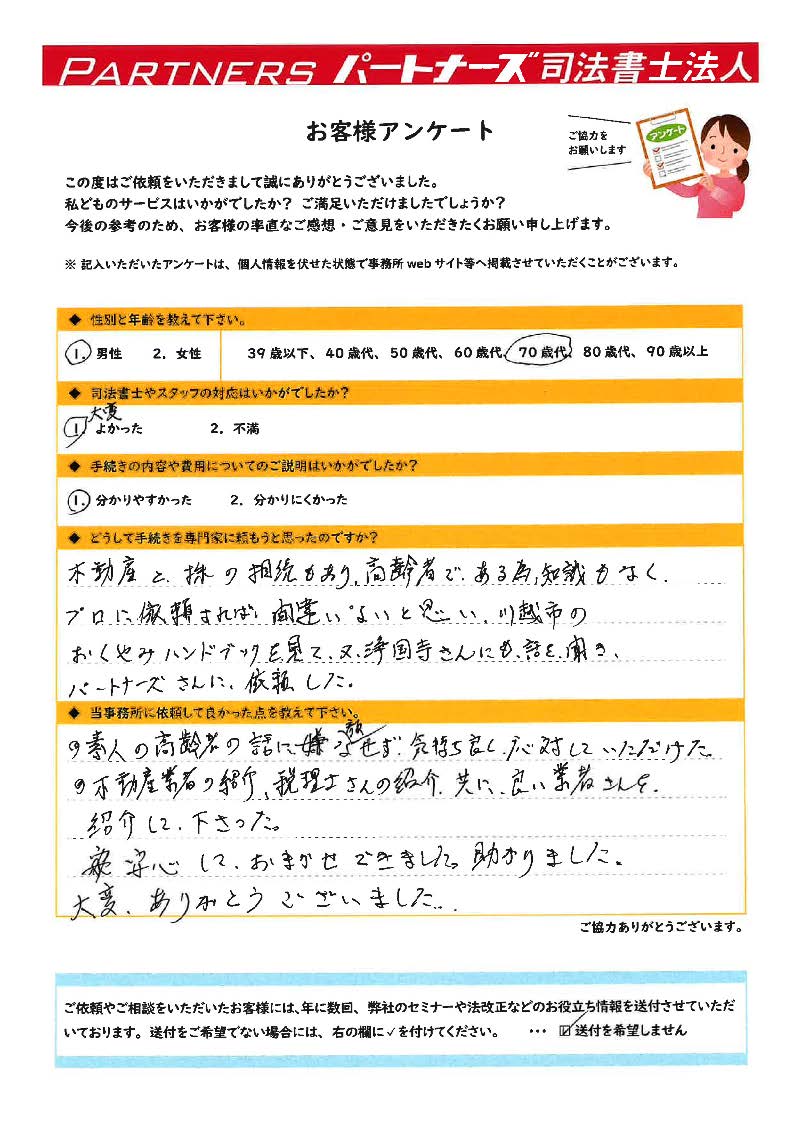 PARTNERS パートナーズ 司法書士法人
お客様アンケート
ご協力を
お願いします
アンケート
この度はご依頼をいただきまして誠にありがとうございました。
私どものサービスはいかがでしたか? ご満足いただけましたでしょうか?
今後の参考のため、お客様の率直なご感想・ご意見をいただきたくお願い申し上げます。
※ 記入いただいたアンケートは、個人情報を伏せた状態で事務所 web サイト等へ掲載させていただくことがございます。
◆ 性別と年齢を教えて下さい。
1. 男性 2. 女性 39 歳以下、40 歳代、50 歳代、60 歳代、70 歳代、80 歳代、90 歳以上
◆ 司法書士やスタッフの対応はいかがでしたか?
大変
1. よかった 2. 不満
◆ 手続きの内容や費用についてのご説明はいかがでしたか?
1. 分かりやすかった 2. 分かりにくかった
◆ どうして手続きを専門家に頼もうと思ったのですか?
不動産と、株の相続もあり、高齢者で、ある為、知識もなく、
プロに依頼すれば、間違いないと思い、川越市の
おくやみハンドブックを見て、又、浄国寺さんにも、話を、聞き、
パートナーズさんに、依頼した。
◆ 当事務所に依頼して良かった点を教えて下さい。
◎素人の高齢者の話に嫌な顔せず、気持ち良く、応対していただけた
◎不動産業者の紹介、税理士さんの紹介、共に、良い業者さんを、
紹介して、下さった。
安心して、おまかせできました。助かりました。
大変、ありがとうございました。
ご協力ありがとうございます。
ご依頼やご相談をいただいたお客様には、年に数回、弊社のセミナーや法改正などのお役立ち情報を送付させていただ
いております。送付をご希望でない場合には、右の欄に✓を付けてください。 ・・・ ☑ 送付を希望しません